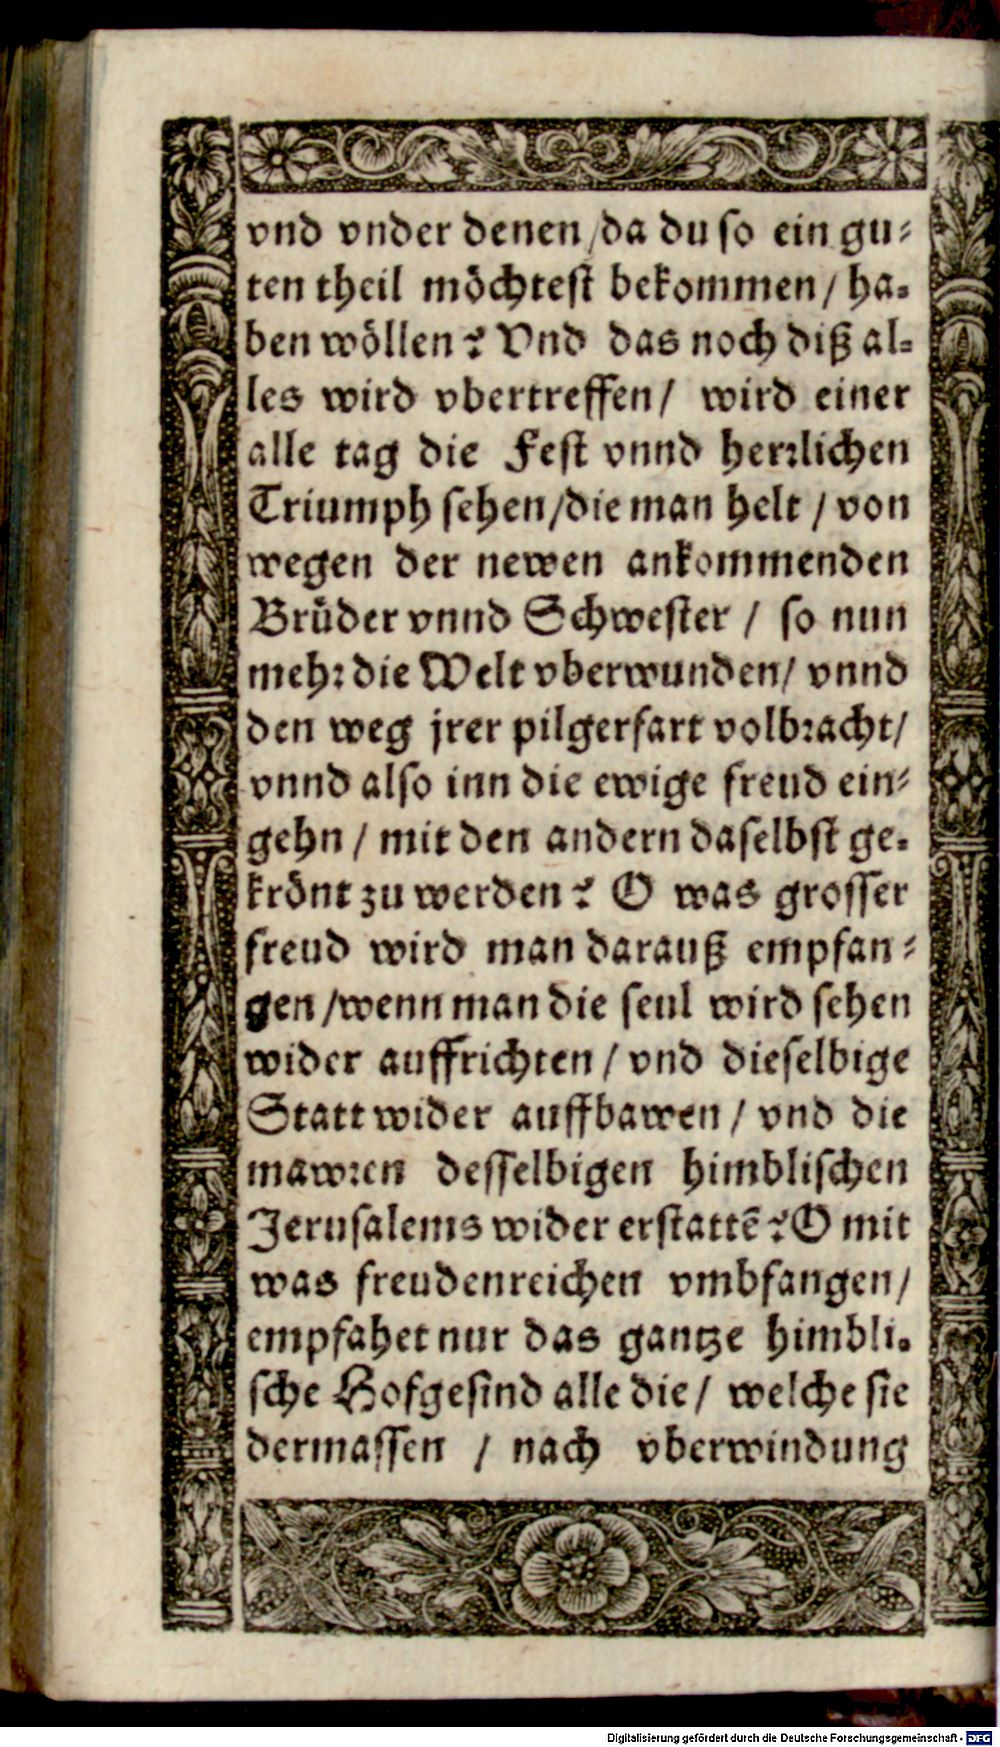 vnd vnder denen / da du so ein gu⸗
ten theil möchtest bekommen / ha⸗
ben wöllen? Vnd das noch diß al⸗
les wird vbertreffen / wird einer
alle tag die Fest vnnd herꝛlichen
Triumph sehen / die man helt / von
wegen der newen ankommenden
Brůder vnnd Schwester / so nun
mehꝛ die Welt vberwunden / vnnd
den weg jrer pilgerfart volbꝛacht /
vnnd also inn die ewige freud ein⸗
gehn / mit den andern daselbst ge⸗
krönt zu werden? O was grosser
freud wird man darauß empfan⸗
gen / wenn man die seul wird sehen
wider auffrichten / vnd dieselbige
Statt wider auffbawen / vnd die
mawꝛen desselbigen himblischen
Jerusalems wider erstattē? O mit
was freudenreichen vmbfangen /
empfahet nur das gantze himbli⸗
sche Hofgesind alle die / welche sie
dermassen / nach vberwindung
Digitalisierung gefördert durch die Deutsche Forschungsgemeinschaft - DFG